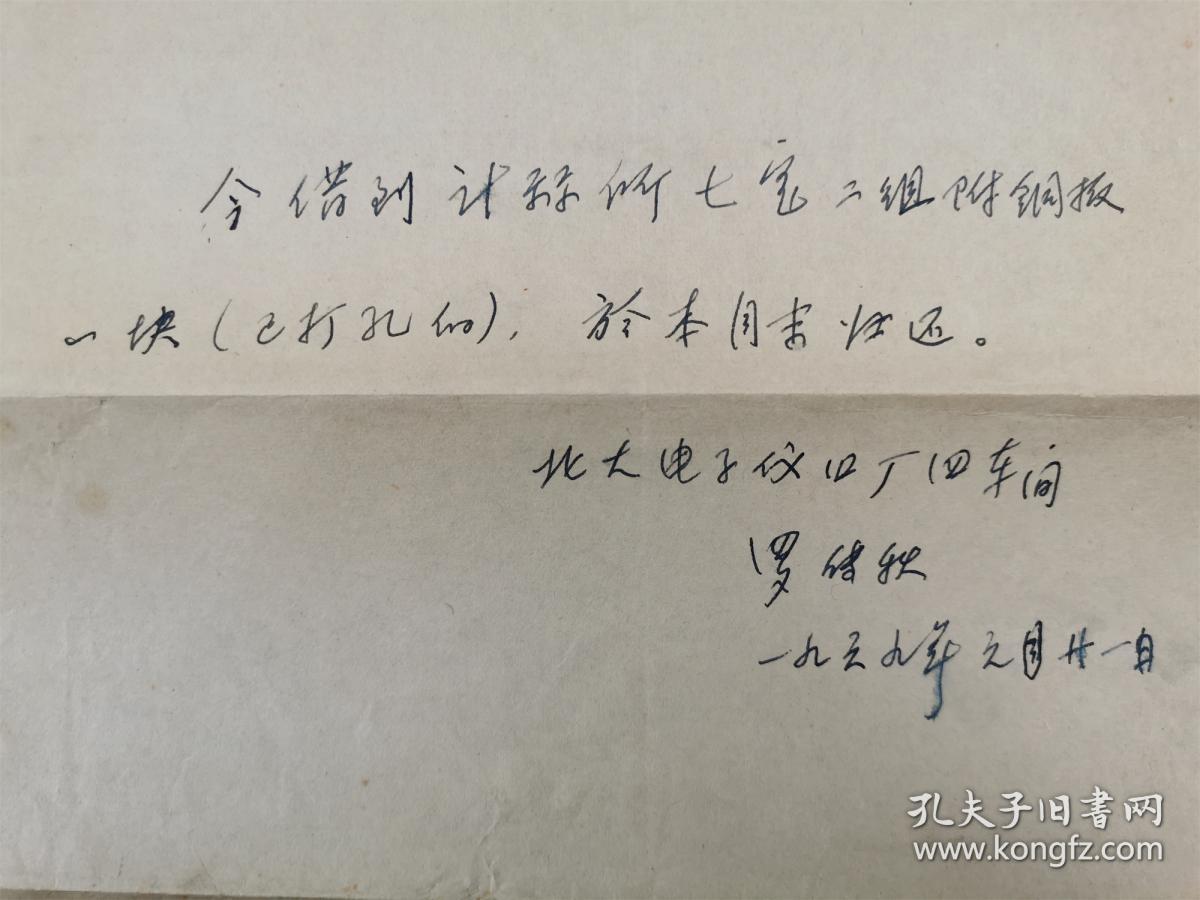 今借到计算所七室二组附铜板
一块(已打孔的),於本月末归还。
北大电子仪口厂四车间
罗
一九六九年元月廿一日
孔夫子旧书网
www.kongfz.com